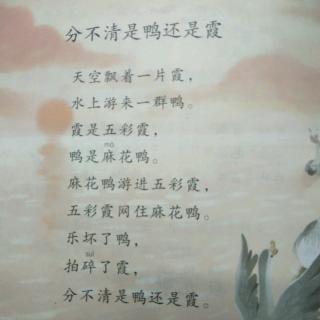 分不清是鸭还是霞
天空飘着一片霞，
水上游来一群鸭。
霞是五彩霞，
má
鸭是麻花鸭。
麻花鸭游进五彩霞，
五彩霞网住麻花鸭。
乐坏了鸭，
suì
拍碎了霞，
分不清是鸭还是霞。